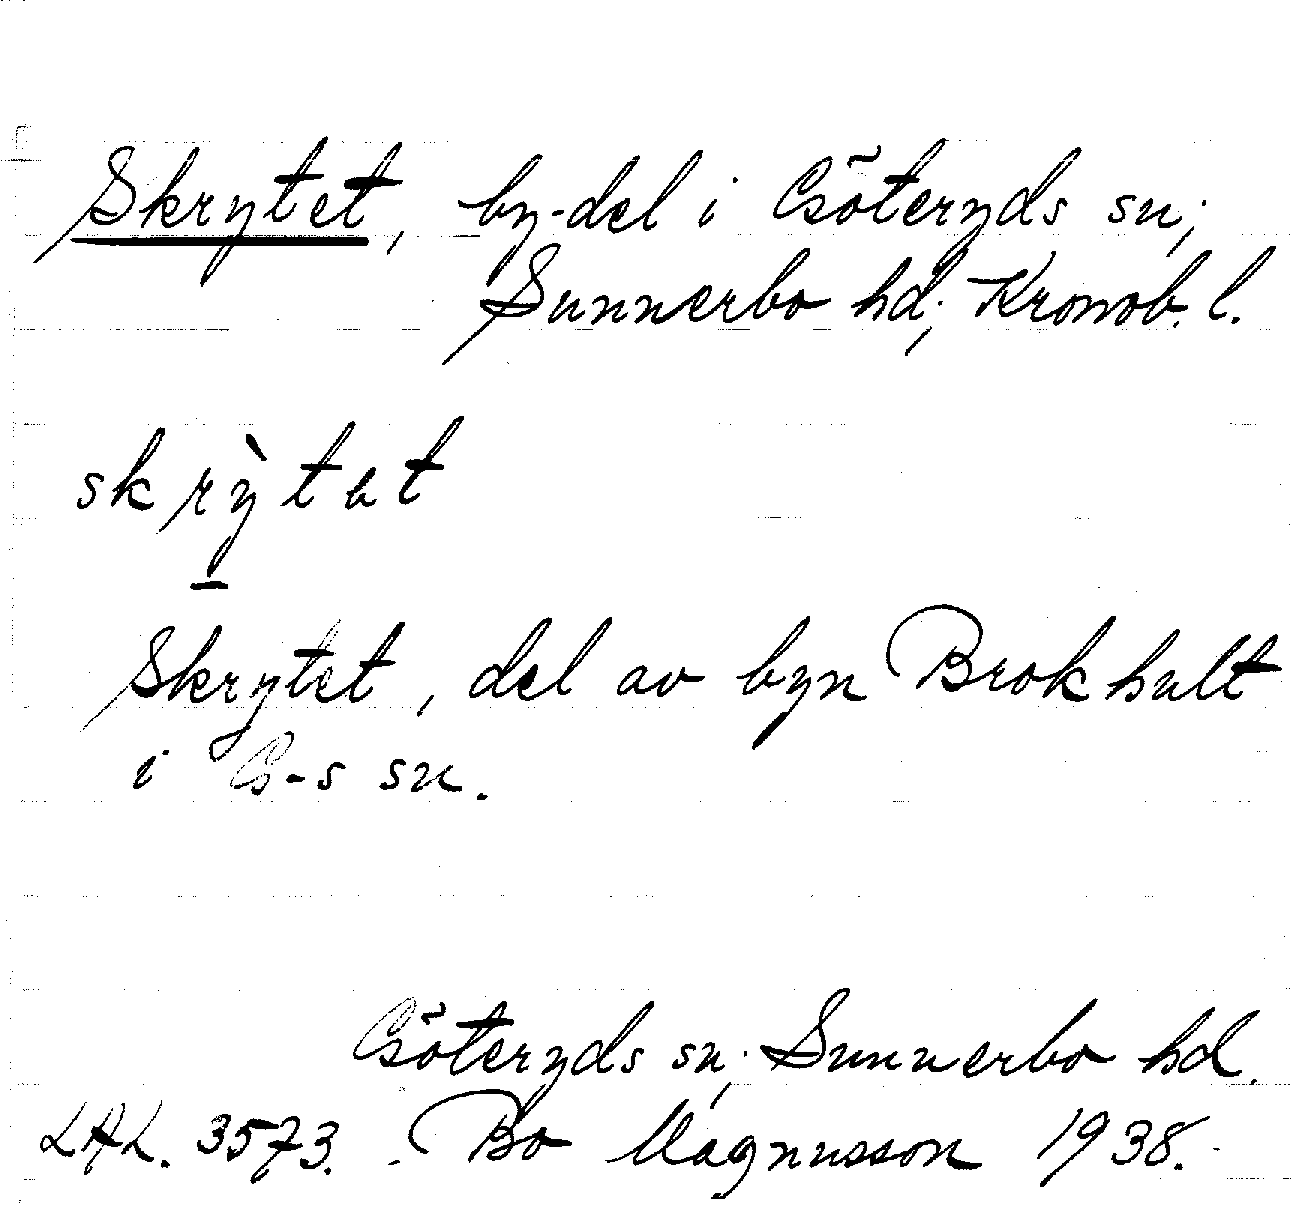 Skrytet, by-del i Göteryds sn;
Sunnerbo hd; Kronob. l.
skrỳtet
Skrytet, del av byn Brokhult
i G-s sn.
Göteryds sn; Sunnerbo hd.
LAL. 3573. Bo Magnusson 1938.